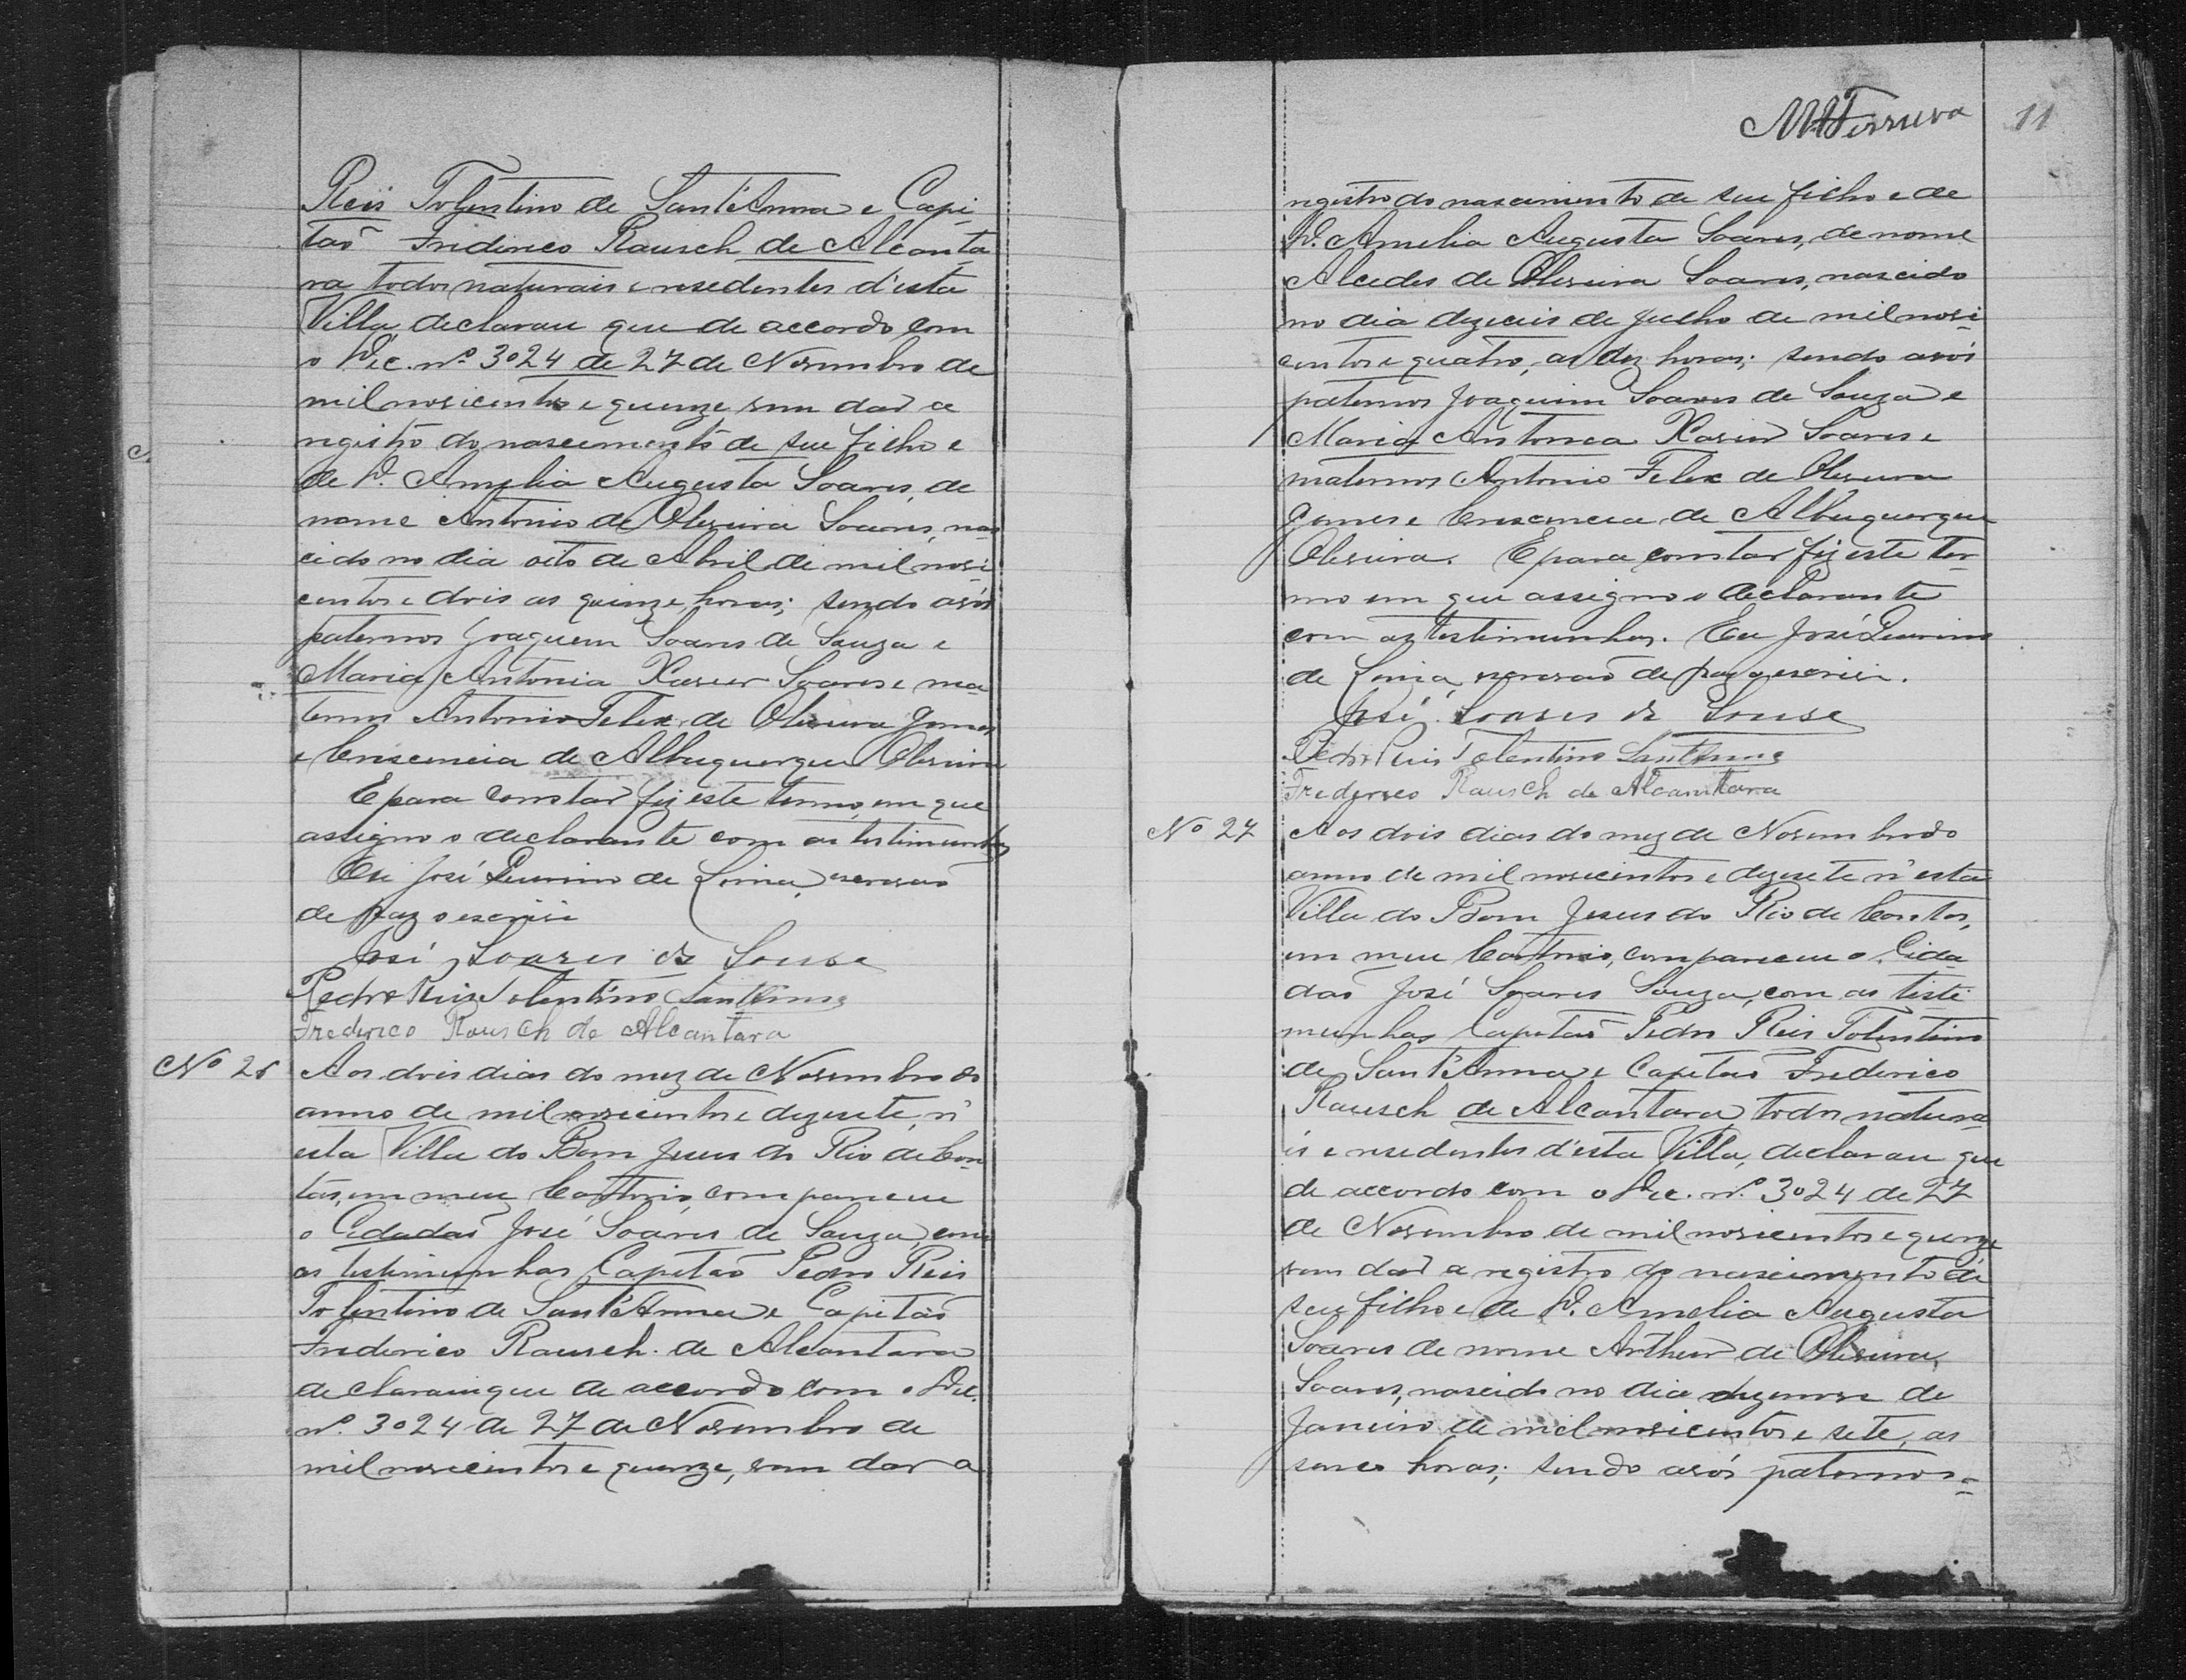 Reis Tolentino de Sant'Anna e Capi-
tão Frederico Rausch de Alcanta-
ra todos naturais e resedentes d'esta
Villa, declarau que de accordo com
o Dec. nº 3024 de 27 de Novembro de
mil novicentos e quenze vem dar a
registro do nascemento de seu filho e
de D. Amelia Augusta Soares, de
nome Antonio de Oliveira Soares, nas
cido no dia oito de Abril de mil novi-
centos e dois as quinze horas; sendo avós
paternos Joaquem Soares de Souza e
Maria Antonia Xavier Soares e ma
ternos Antonio Felex de Oliveira Gomes
e Crescencia de Albuquerque Oliveira
E para constar fiz este termo, em que
assigno o declarante com as testimunhas
Eu José de Lima, escrevão
de paz o escrivi
José Soares de Sousa
Pedro Reis Tolentino SantAnna
Frederico Rausch de Alcantara
Nº 26 Aos dois dias do mez de Novembro do
anno de mil novicentos e dezesete, n'
esta Villa do Bom Jesus do Rio de Con-
tas, em meu Cartorio, compareceu
o Cedadão José Soares de Souza, com
as testimunhas Capetão Pedro Reis
Tolentino de Sant'Anna e Capitão
Frederico Rausch de Alcantara
declarau que de accordo com o Dec.
nº 3024 de 27 de Novembro de
mil novecentos e quenze, vem dar a
MFerreira 11
registro do nascimento de seu filho e de
D. Amelia Augusta Soares, de nome
Alcedes de Oliveira Soares, nascido
no dia dezeceis de Julho de mil novi-
centos e quatro, as dez horas; sendo avós
paternos Joaquim Soares de Souza e
Maria Antonia Xavier Soares e
maternos Antonio Felex de Oliveira
Gomes e Crescencia de Albuquerque
Oliveira. E para constar fiz este ter-
mo em que assigno o declarante
com as testimunhas. Eu José
de Lima, escrevão de paz o escrivi.
José Soares de Sousa
Pedro Reis Tolentino SantAnna
Frederico Rausch de Alcantara
Nº 27 Aos dois dias do mez de Novembro do
anno de mil novicentos e dezesete n'esta
Villa do Bom Jesus do Rio de Contas,
em meu Cartorio, compareceu o Cida-
dão José Soares Souza, com as teste-
munhas Capetão Pedro Reis Tolentino
de Sant'Anna e Capetão Frederico
Rausch de Alcantara, todos natura-
is e resedentes d'esta Villa, declarau que
de accordo com o Dec. nº 3024 de 27
de Novembro de mil novicentos e quenze
vem dar a registro do nascimento de
seu filho e de D. Amelia Augusta
Soares de nome Arthur de Oliveira
Soares, nascido no dia dezenove de
Janeiro de mil novicentos e sete, as
senco horas; sendo avós paternos-